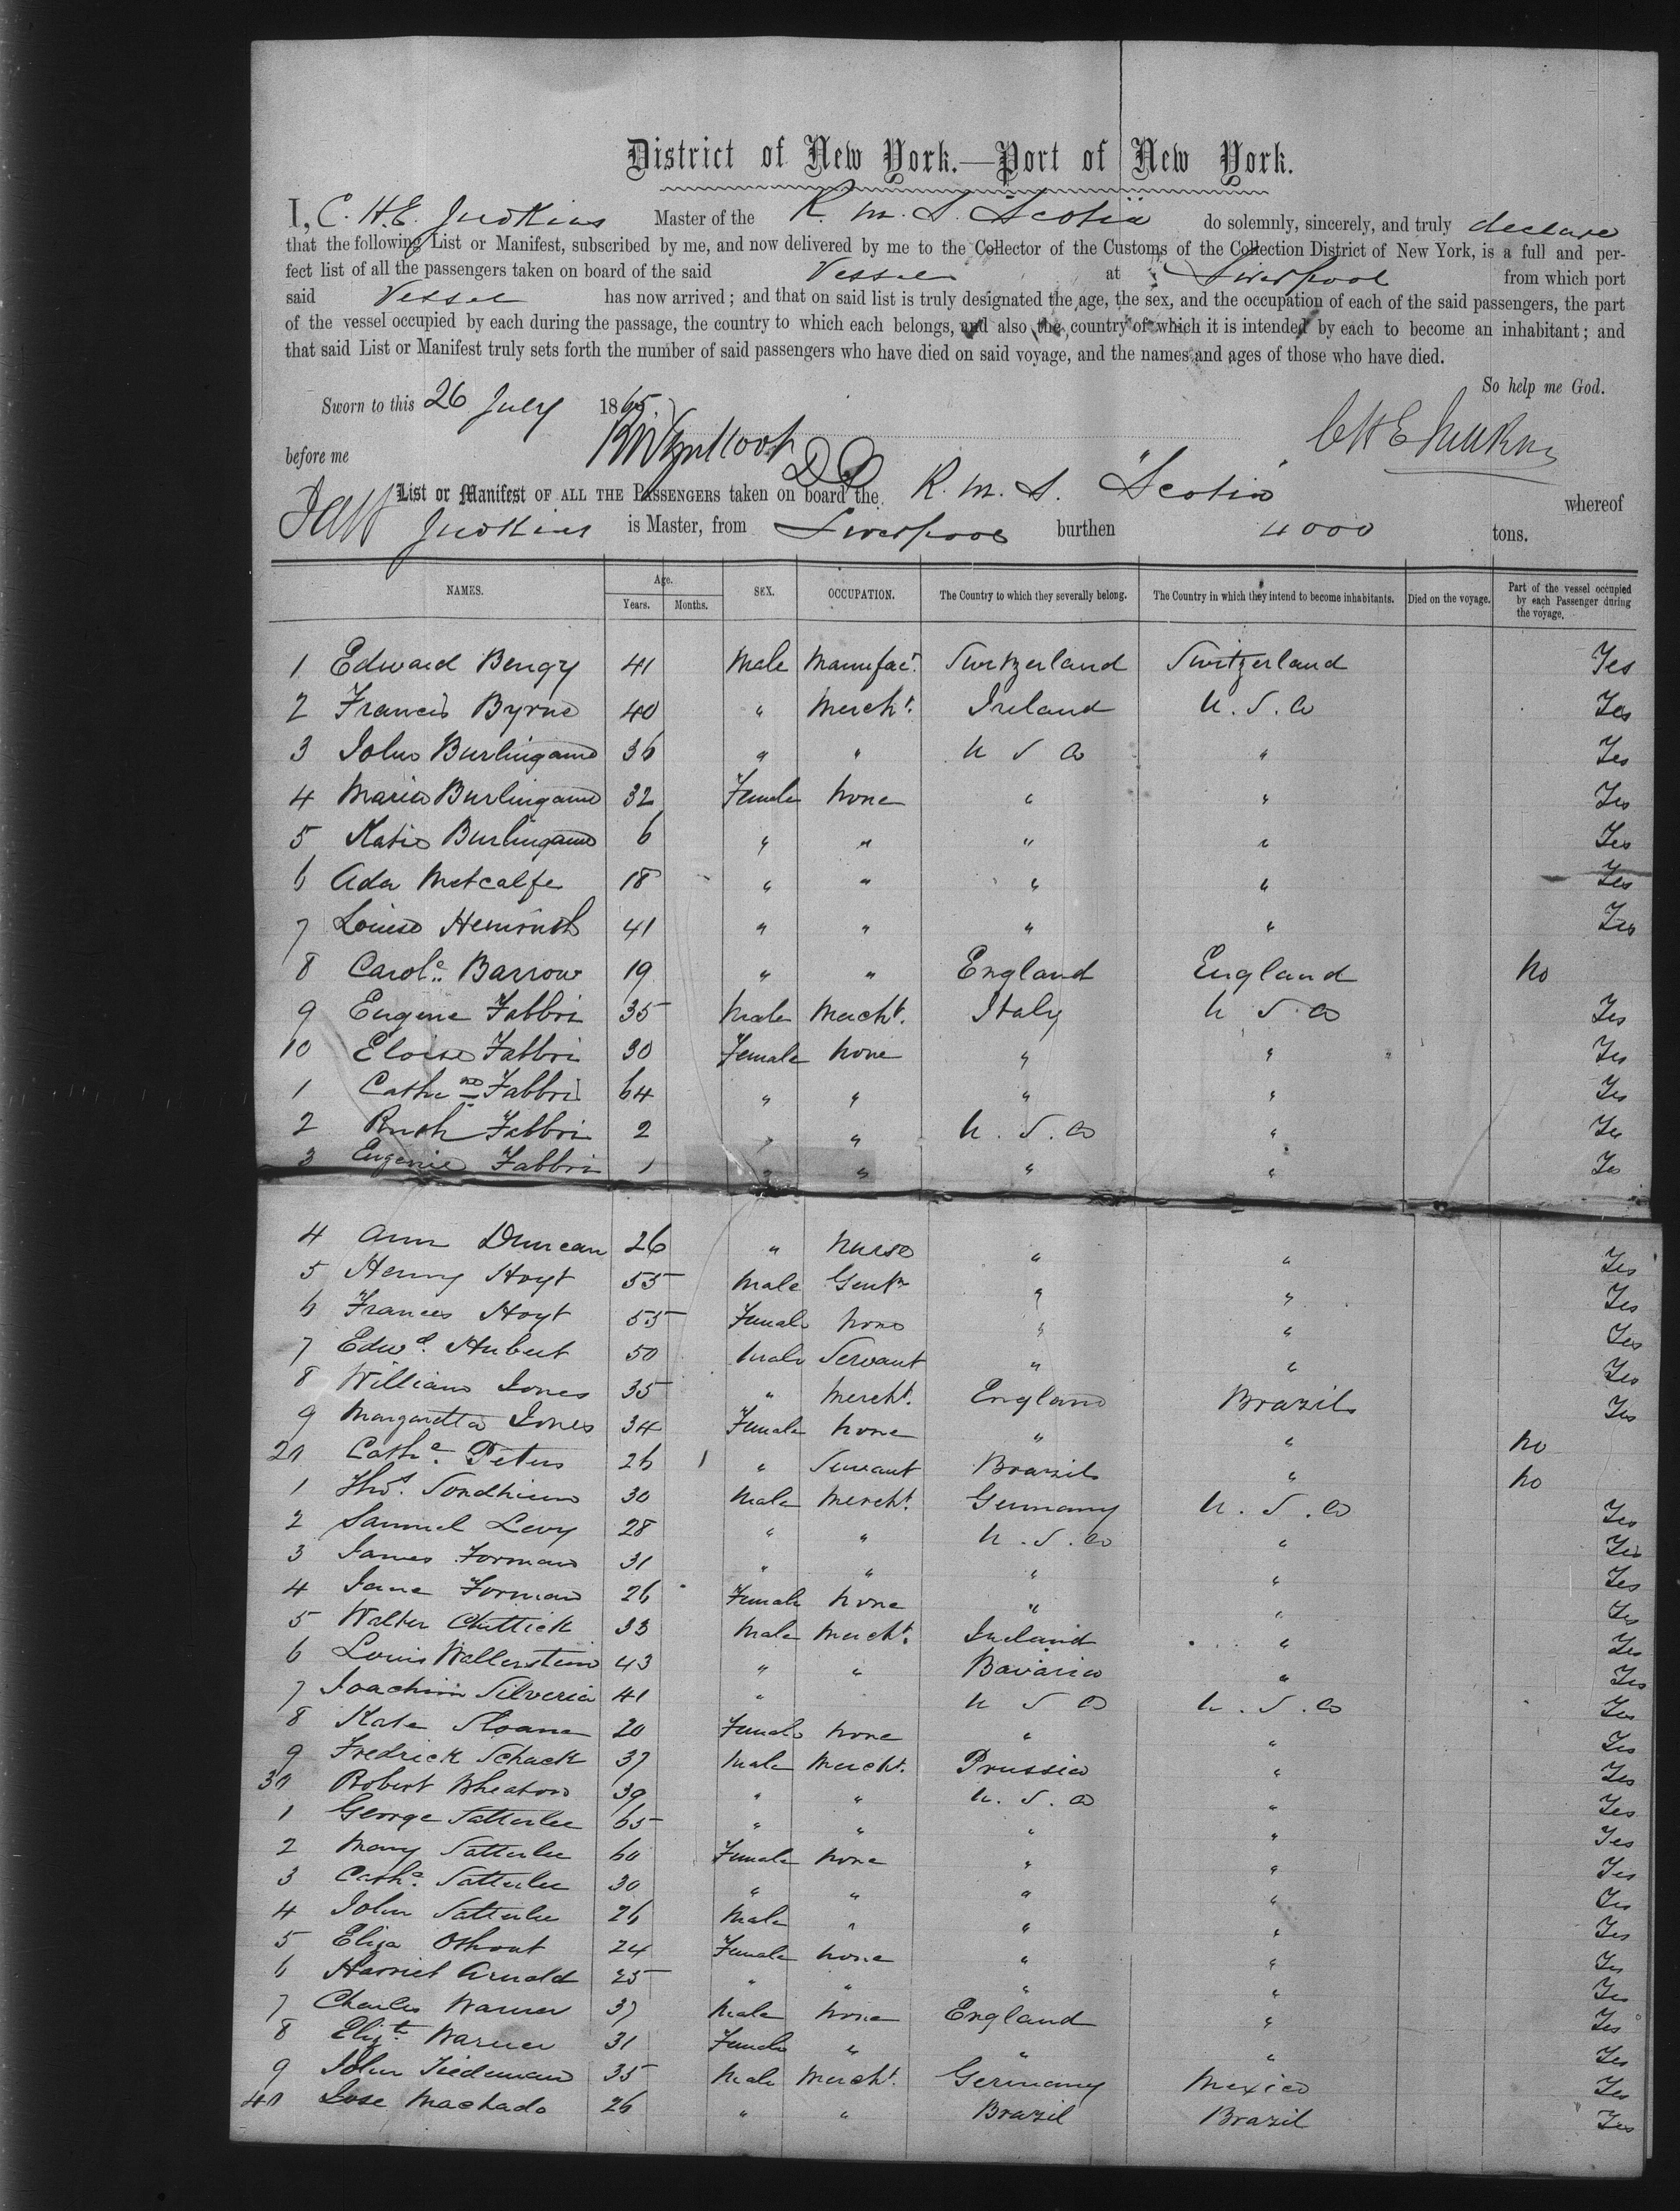 District of New York.—Port of New York.
I, C. H. E. Judkins Master of the R. M. S. Scotia do solemnly, sincerely, and truly declare
that the following List or Manifest, subscribed by me, and now delivered by me to the Collector of the Customs of the Collection District of New York, is a full and per-
fect list of all the passengers taken on board of the said Vessel at Liverpool from which port
said Vessel has now arrived; and that on said list is truly designated the age, the sex, and the occupation of each of the said passengers, the part
of the vessel occupied by each during the passage, the country to which each belongs, and also the country of which it is intended by each to become an inhabitant; and
that said List or Manifest truly sets forth the number of said passengers who have died on said voyage, and the names and ages of those who have died.
So help me God.
Sworn to this 26 July 1865.
before me
CHE Judkins
List or Manifest OF ALL THE PASSENGERS taken on board the R. M. S. "Scotia" whereof
Judkins is Master, from Liverpool burthen 4000 tons.
NAMES. Age. Years. Months. SEX. OCCUPATION. The Country to which they severally belong. The Country in which they intend to become inhabitants. Died on the voyage. Part of the vessel occupied by each Passenger during the voyage.
1 Edward Bengy 41 Male Manufacr. Switzerland Switzerland Yes
2 Francis Byrne 40 " Mercht. Ireland U. S. a Yes
3 John Burlingame 36 " " U S a " Yes
4 Maria Burlingame 32 Female None " " Yes
5 Katie Burlingame 6 " " " " Yes
6 Ada Metcalfe 18 " " " " Yes
7 Louise 41 " " " " Yes
8 Carole. Barrow 19 " " England England No
9 Eugene Fabbri 35 Male Mercht. Italy U S a Yes
10 Eloise Fabbri 30 Female None " " Yes
1 Cathne Fabbri 64 " " " " Yes
2 Ruth Fabbri 2 " " U. S. a " Yes
3 Eugenie Fabbri 1 " " " " Yes
4 Ann Duncan 26 " Nurse " " Yes
5 Henry Hoyt 55 Male Gentn " " Yes
6 Frances Hoyt 55 Female None " " Yes
7 Edwd. Hubert 50 Male Servant " " Yes
8 William Jones 35 " Mercht. England Brazil Yes
9 Margaretta Jones 34 Female None " " No
20 Cathe. Peters 26 1 " Servant Brazil " No
1 Thos. Sondheim 30 Male Mercht. Germany U. S. a Yes
2 Samuel Levy 28 " " U. S. a " Yes
3 James Forman 31 " " " " Yes
4 Jane Forman 26 Female None " " Yes
5 Walter Chittick 33 Male Mercht. Ireland " Yes
6 Louis Wallerstein 43 " " Bavaria " Yes
7 Joachim Silveria 41 " U S a U. S. a Yes
8 Kate Sloane 20 Female None " " Yes
9 Fredrick Schack 37 Male Mercht. Prussia " Yes
30 Robert Wheaton 39 " " U. S. a " Yes
1 George Satterlee 65 " " " " Yes
2 Mary Satterlee 60 Female None " " Yes
3 Cathe. Satterlee 30 " " " " Yes
4 John Satterlee 26 Male " " " Yes
5 Eliza Othout 24 Female None " " Yes
6 Harriet Arnold 25 " " " " Yes
7 Charles Warner 37 Male None England " Yes
8 Elizth. Warner 31 Female " " " Yes
9 John Tiedeman 35 Male Mercht. Germany Mexico Yes
40 Jose Machado 26 " " Brazil Brazil Yes